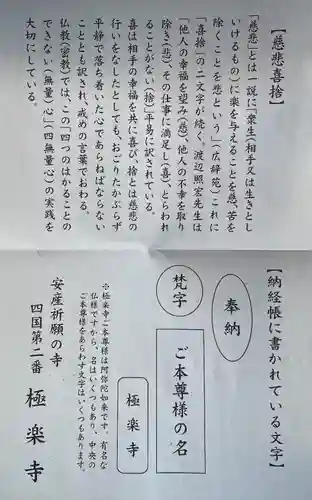 【慈悲喜捨】
「慈悲」とは一説に「衆生(相手又は生きとし
いけるもの)に楽を与えることを慈、苦を
除くことを悲という」(広辞苑)これに
「喜捨」の二文字が続く。渡辺照宏先生は
「他人の幸福を望み(慈)、他人の不幸を取り
除き(悲)、その仕事に満足し(喜)、とらわれ
ることがない(捨)」平易に訳されている。
喜は相手の幸福を共に喜び、捨とは慈悲の
行いをなしたとしても、おごりたかぶらず
平静で落ち着いた心であらねばならない
ことも訳され、戒めの言葉でおわる。
仏教(密教)では、この「四つのはかることの
できない(無量)心」(四無量心)の実践を
大切にしている。
【納経帳に書かれている文字】
奉納
梵字
ご本尊様の名
極楽寺
※極楽寺ご本尊様は阿弥陀如来です。有名な
仏様ですから、名はいくつもあり、中央の
ご本尊様をあらわす文字はいくつもあります。
安産祈願の寺
四国第二番 極楽寺